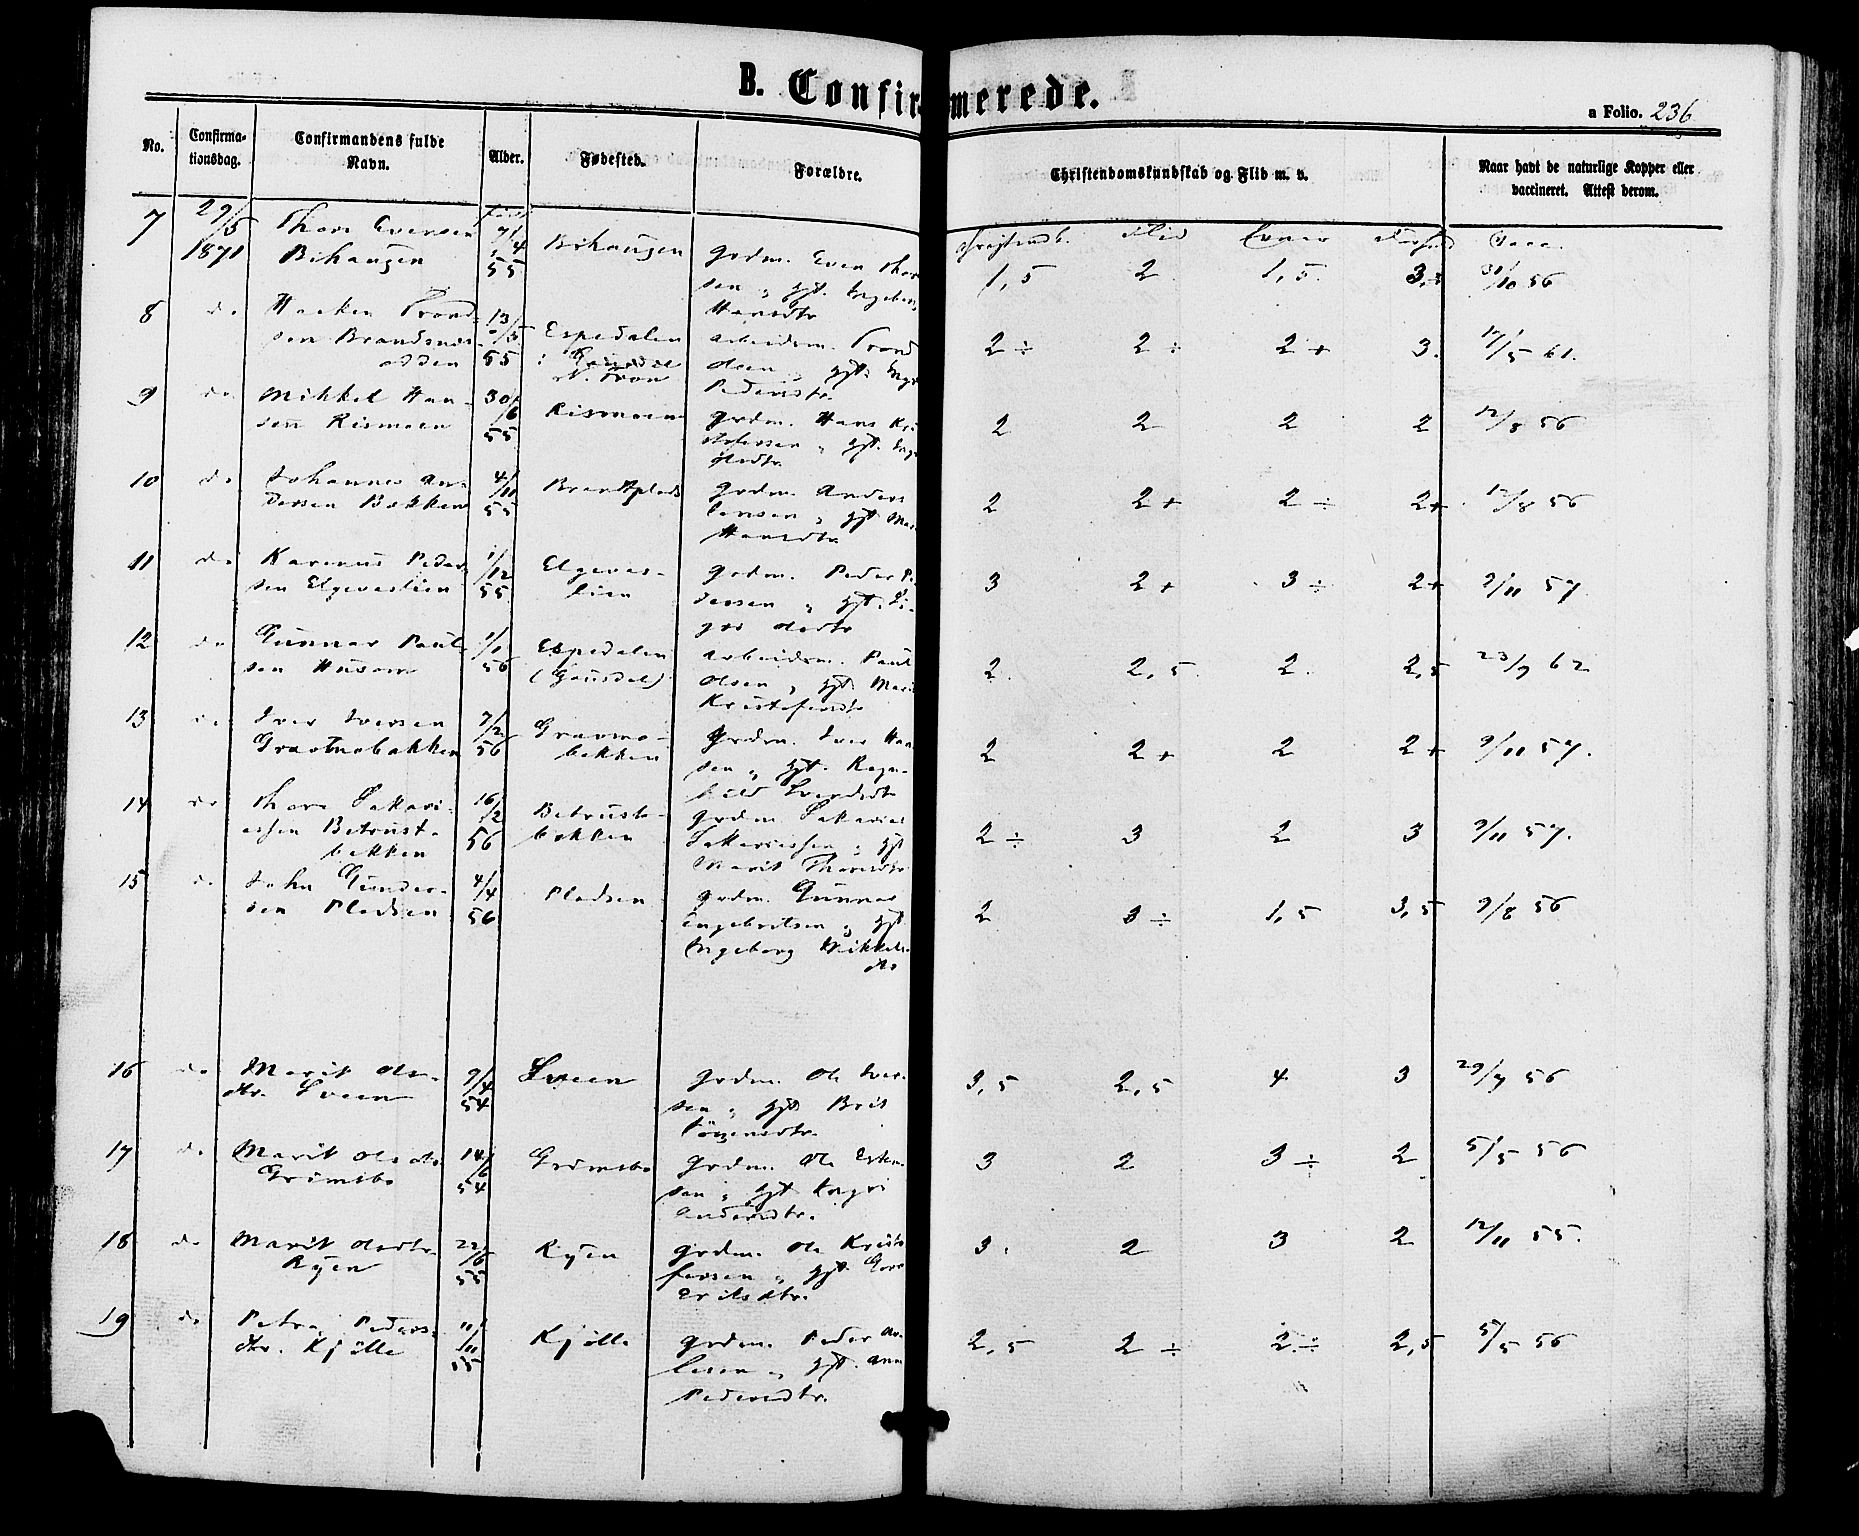 B. Confirmerede.
a Folio. 236
No.
Confirmationsdag.
Confirmandens fulde Navn.
Alder.
Fødested.
Forældre.
Christendomskundskab og Flid m. v.
Naar havt de naturlige Kopper eller vaccineret. Attest derom.
Flid Evner Vacc.
7 29/5 1871 Thore Evensen Bihaugen 55 Bihaugen Grdm. Even Thor
sen " gft. Hansdtr 1,5 2 1,5 3 /10 56
8 do Haaken Trond
sen odden 13/5 55 Espedalen arbeidsm. Trond
Olsen " gft. Pedersdtr 2÷ 2÷ 2+ 3. /5 61.
9 do Mikkel Han
sen Rismoen 30/6 55 Rismoen grdm. Hans Kri
stofersen " gft. Olsdtr. 2 2 2 2 12/8 56
10 do Johannes An
dersen Bakken 4/11 55 grdm. Anders
Jensen " gft. Hansdtr 2 2+ 2÷ 2+ 12/8 56
11 do Karenus Peder
sen Elgevaslien 1/12 55 Elgevas-
lien grdm. Peder Pe
dersen " gft. Olsdtr 3 2+ 3÷ 2+ 9/11 57
12 do Gunnar Paul
sen Husom 1/1 56 Espedalen
(Gausdal) arbeidsm. Paul
Olsen " gft. Marit
Kristofersdtr 2. 2,5 2. 2,5 23/9 62
13 do Iver Iversen
56 bakken Grdm. Iver Han
sen " gft. Ragn-
hild 2 2+ 2 2+ 9/11 57.
14 do Thore Sakari-
assen Betrust-
bakken 16/2 56 Betrust-
bakken grdm. Sakarias
Sakariassen " gft
Marit Thoresdtr 2÷ 3 2 3 9/11 57.
15 do John Gunder-
sen Pladsen 4/4 56 Pladsen grdm. Gunnar
Engebretsen " gft
Ingeborg Mikkels
dtr 2 3÷ 1,5 3,5 9/8 56
16 do Marit Ols-
dtr. Sveen 9/4 54 Sveen grdm. Ole Iver-
sen " gft Brit 3,5 2,5 4 3 29/7 56
17 do Marit Olsdtr
Grimsbo 14/6 54 Grimsbo grdm. Ole
sen " gft Ingri
Andersdtr. 3 2 3÷ 2 5/5 56
18 do Marit Olsdtr.
Ryen 22/6 55 Ryen grdm. Ole Kristo
fersen " gft.
Eriksdtr. 3. 2 3 2 12/11 55.
19 do Petra Peders-
dtr. Kjølle 11/11 55 Kjølle grdm. Peder
gft. Anne
Pedersdtr. 2,5 2÷ 2÷ 2,5 5/5 56